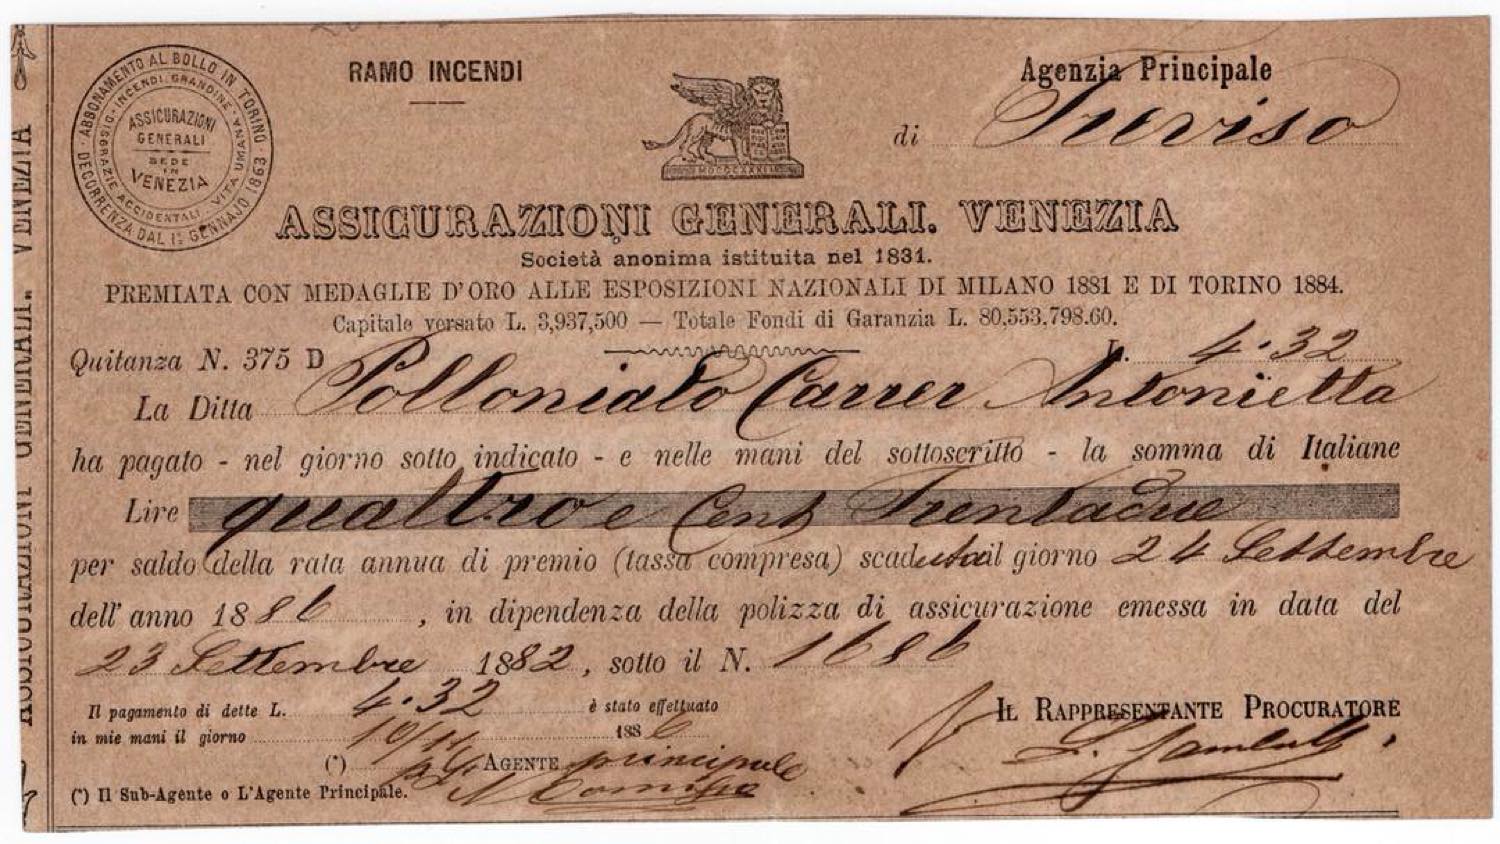 RAMO INCENDI
Agenzia Principale
di Treviso
ABBONAMENTO AL BOLLO IN TORINO · DECORRENZA DAL 1º GENNAJO 1863 ·
INCENDI · GRANDINE · VITA UMANA · DISGRAZIE ACCIDENTALI
ASSICURAZIONI
GENERALI
SEDE
IN
VENEZIA
ASSICURAZIONI GENERALI. VENEZIA
Società anonima istituita nel 1831.
PREMIATA CON MEDAGLIE D'ORO ALLE ESPOSIZIONI NAZIONALI DI MILANO 1881 E DI TORINO 1884.
Capitale versato L. 3,937,500 — Totale Fondi di Garanzia L. 80,553,798.60.
Quitanza N. 375 D L. 4.32
La Ditta Polloniato Carrer Antonietta
ha pagato - nel giorno sotto indicato - e nelle mani del sottoscritto - la somma di Italiane
Lire quattro e Cent Trentadue
per saldo della rata annua di premio (tassa compresa) scaduta il giorno 24 Settembre
dell' anno 1886, in dipendenza della polizza di assicurazione emessa in data del
23 Settembre 1882, sotto il N. 1686
Il pagamento di dette L. 4.32 è stato effettuato
in mie mani il giorno 10/11 1886
IL RAPPRESENTANTE PROCURATORE
(*) AGENTE principale
(*) Il Sub-Agente o L'Agente Principale.
ASSICURAZIONI GENERALI. VENEZIA